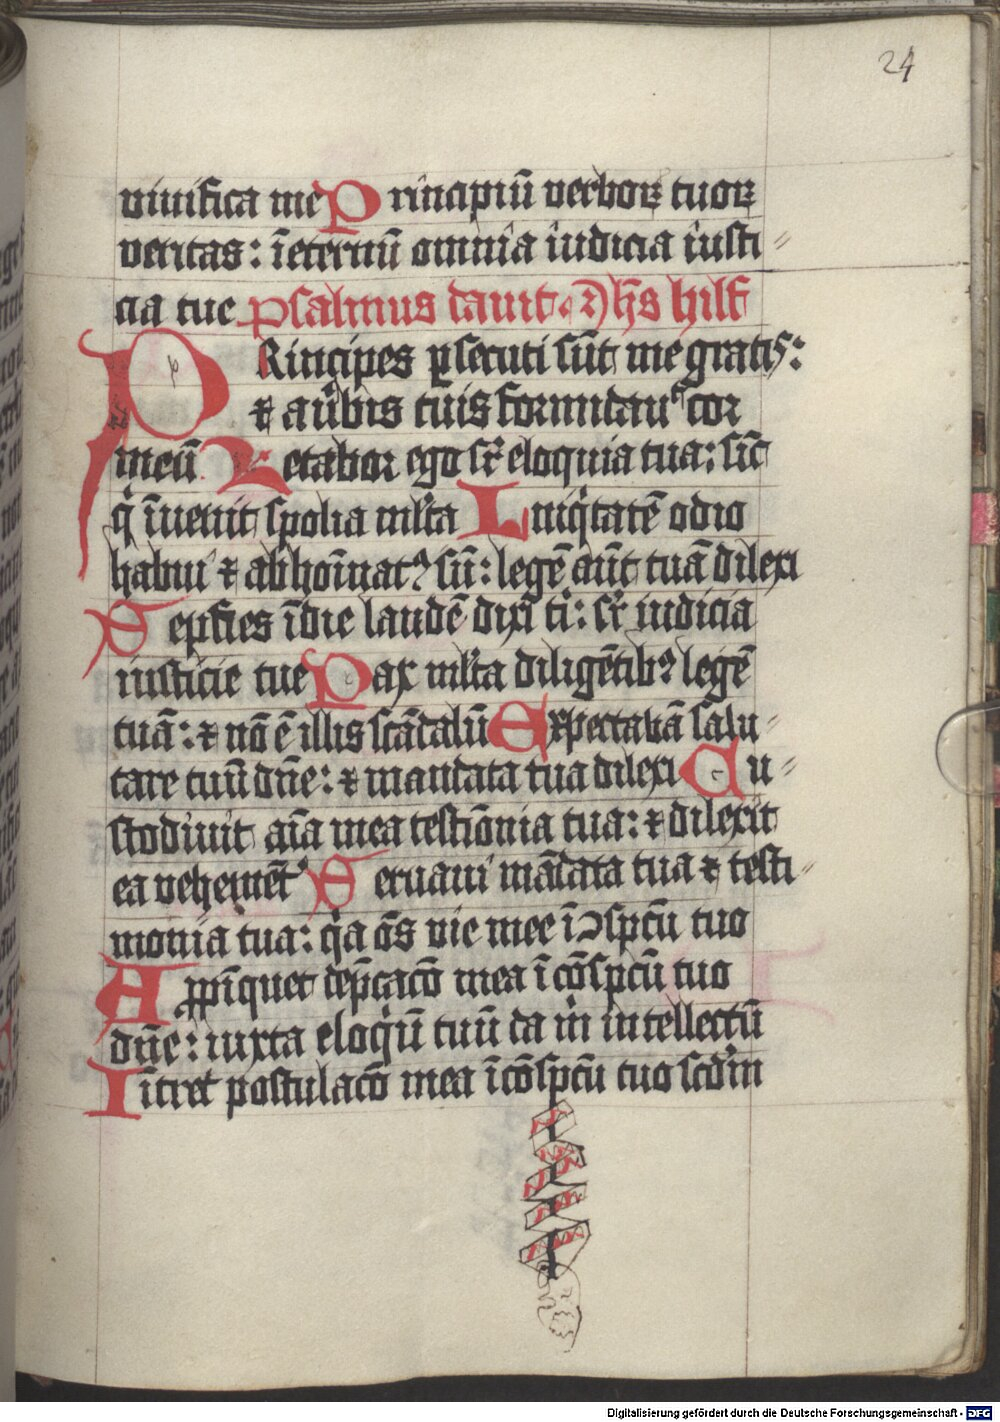 24
viuifica me Principiū verboꝝ tuoꝝ
veritas: ī eternū omnia iudicia iusti⸗
cia tue Psalmus dauit. Ihs hilf
PRincipes ꝑsecuti sūt me gratis:
⁊ a ūbis tuis formidauᵗ cor
meū Letabor ego sꝛ̄ eloquia tua: sic̄
q̇ īuenit spolia ml̄ta Iniq̇tatē odio
habui ⁊ abhoīnatꝰ sū: legē aūt tuā dilexi
Septies ī die laudē dixi t̄: sꝛ̄ iudicia
iusticie tue Pax ml̄ta diligētibꝰ legē
tuā: ⁊ nō ē illis scādalū Expectabā salu⸗
tare tuū dn̄e: ⁊ mandata tua dilexi Cu⸗
stodiuit aīa mea testiōnia tua: ⁊ dilexit
ea vehemēt᾽ Seruaui mādata tua ⁊ testi⸗
monia tua: q̇a oēs vie mee ī ↄspc̄u tuo
Appīquet dep̄cacō mea ī cōspc̄u tuo
dn̄e: iuxta eloq̇ū tuū da ṁ intellectū
Itret postulacō mea ī cōspc̄u tuo scd̄m
Digitalisierung gefördert durch die Deutsche Forschungsgemeinschaft - DFG